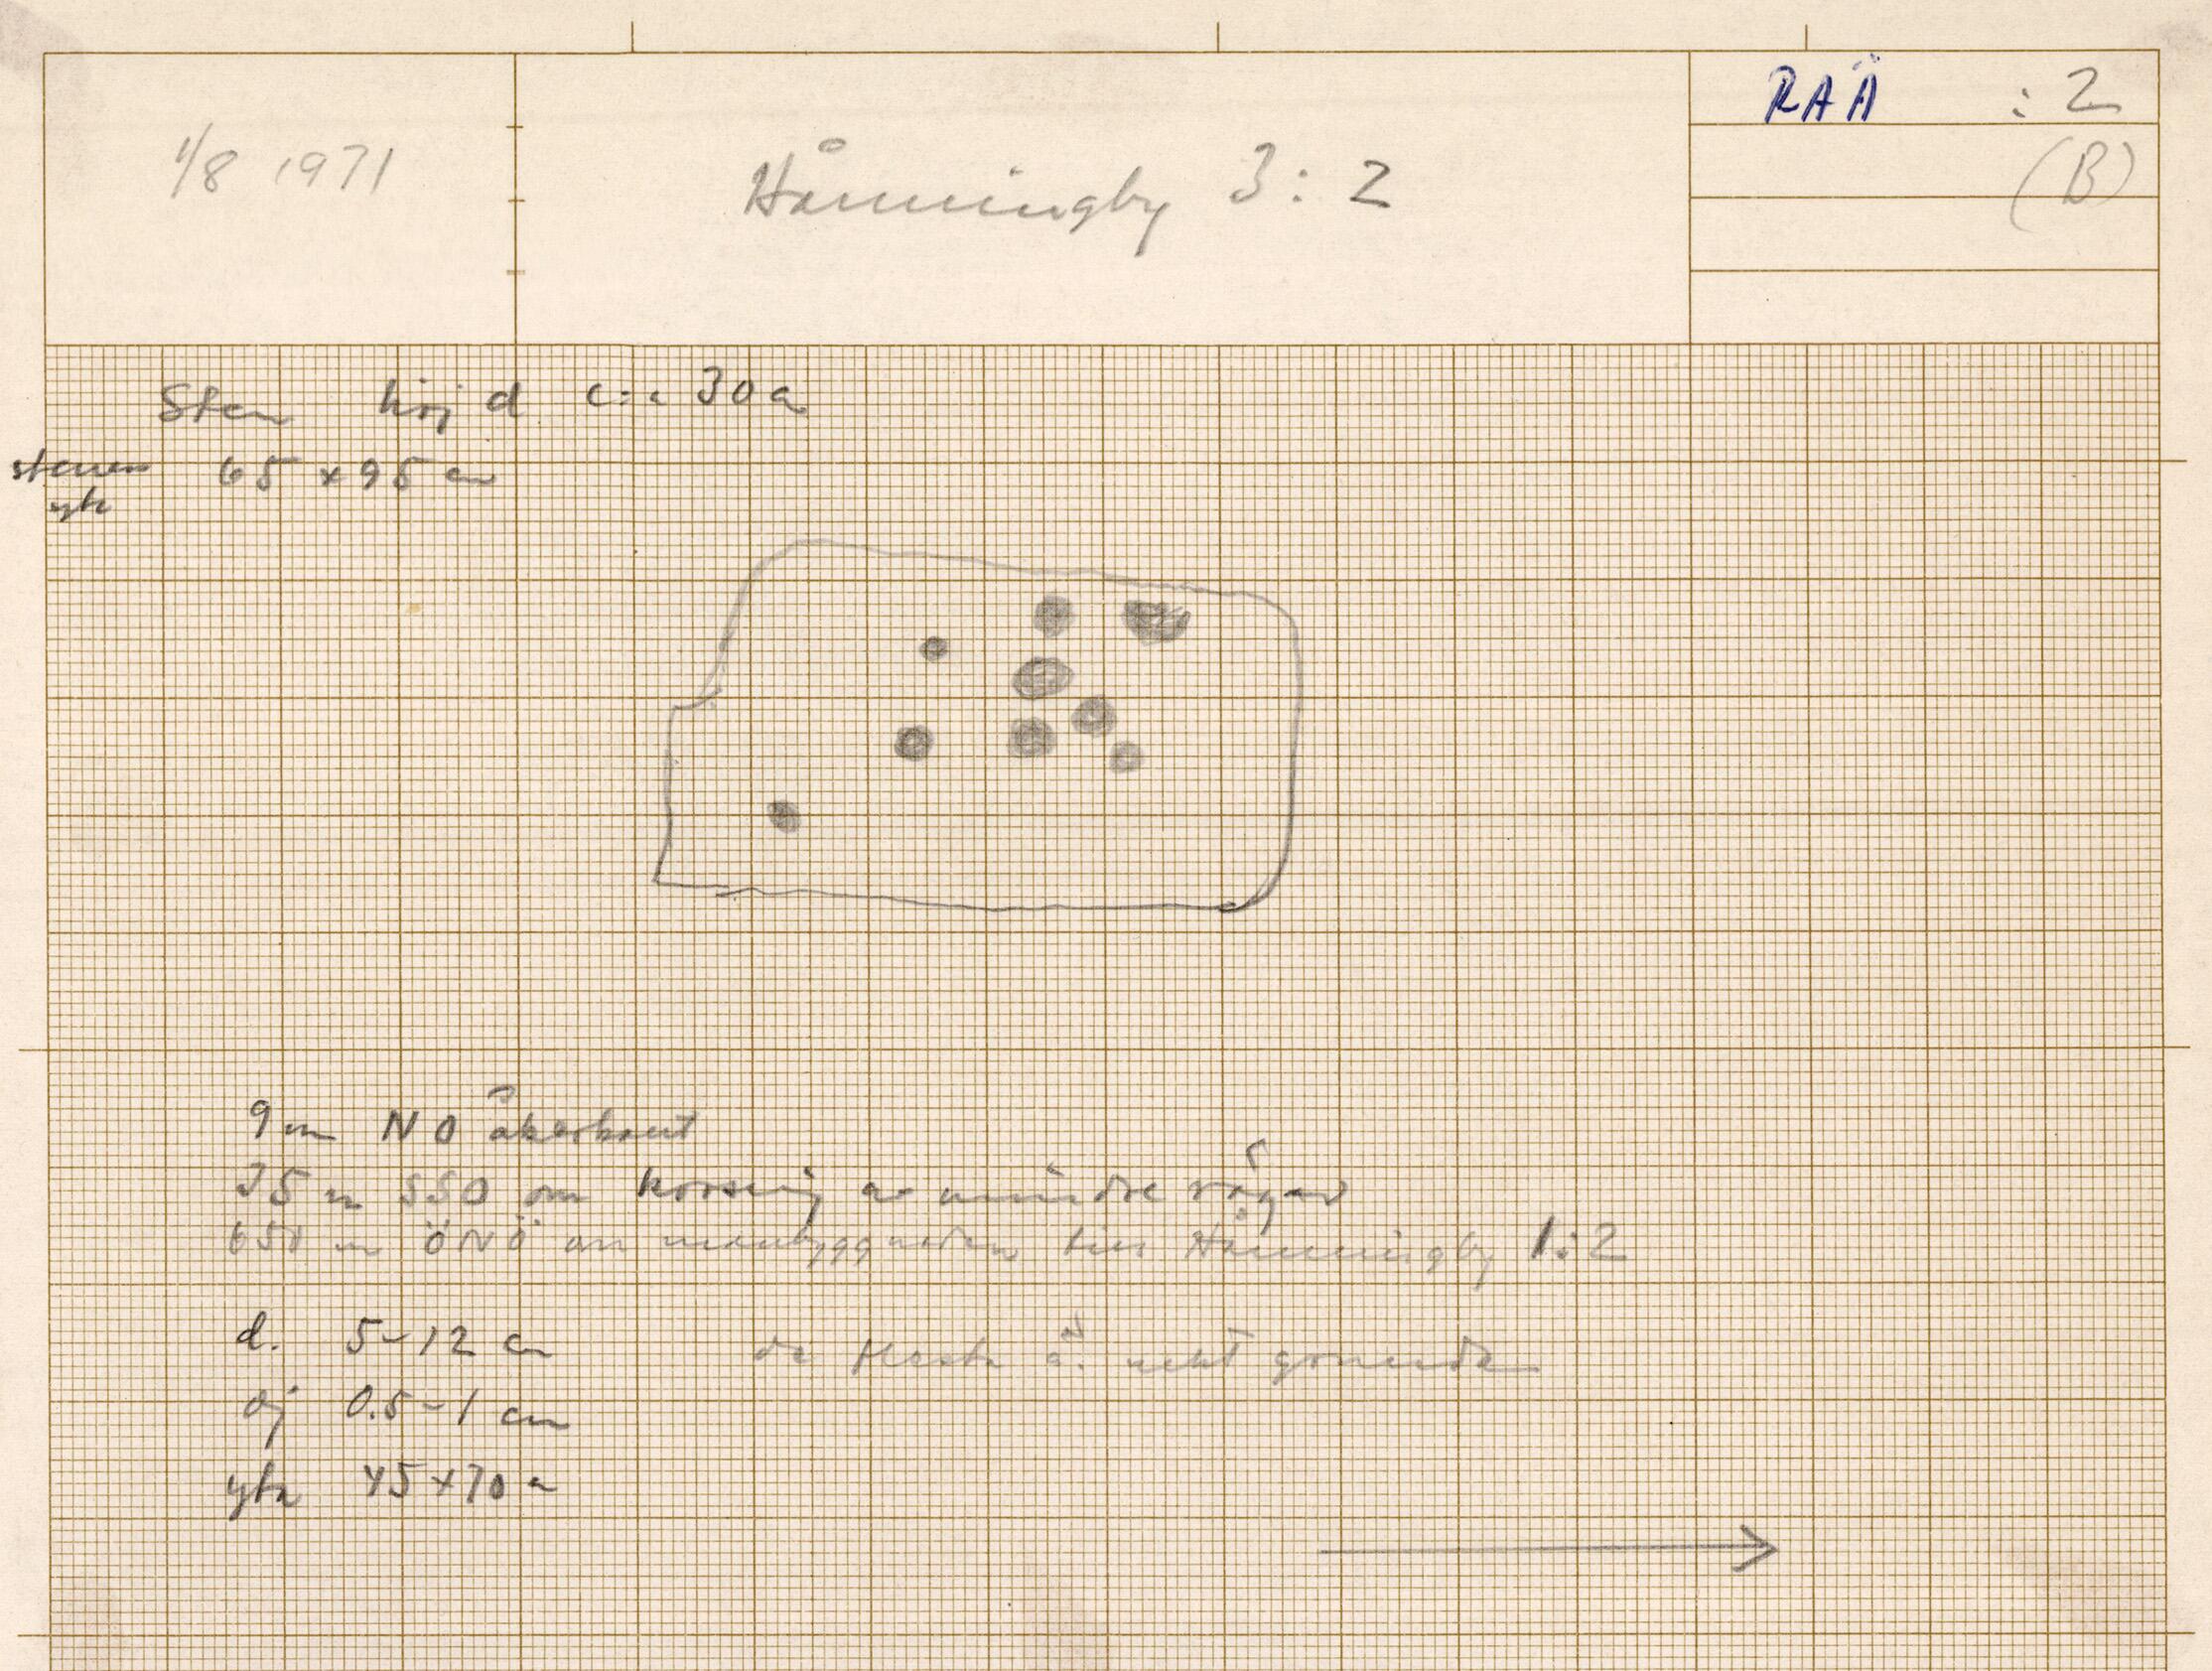 RAÄ :2
(B)
1/8 1971
Hånningby 3:2
Sten höjd c:a 30 cm
stenens yta 65 x 95 cm
9 m NO åkerkant
35 m SSO om korsning av mindre vägar
650 m ÖNÖ om manbyggnaden till Hånningby 1:2
d. 5-12 cm
de flesta är mkt grunda
dj 0.5-1 cm
yta 45x70 cm